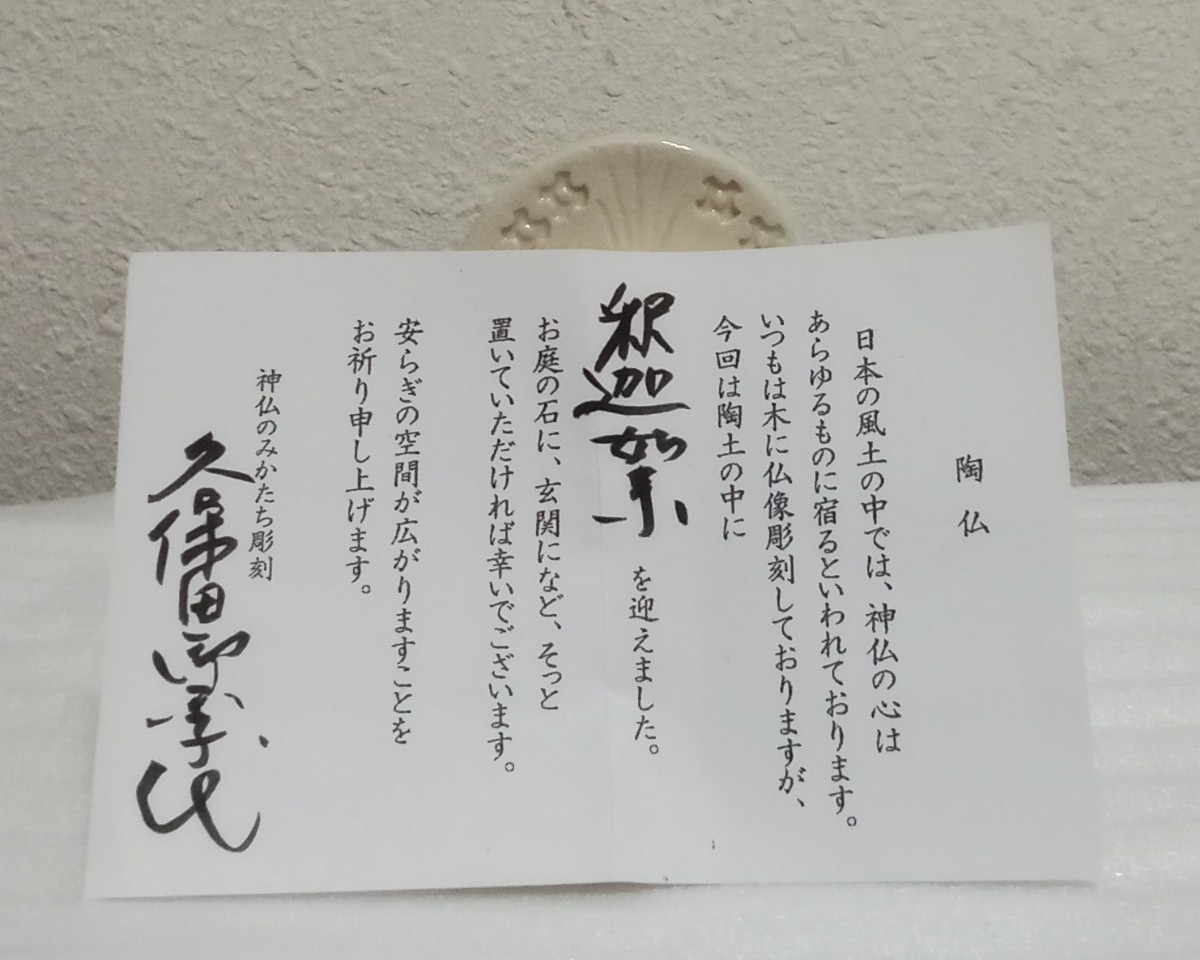 陶仏
日本の風土の中では、神仏の心は
あらゆるものに宿るといわれております。
いつもは木に仏像彫刻しておりますが、
今回は陶土の中に
釈迦如来を迎えました。
お庭の石に、玄関になど、そっと
置いていただければ幸いでございます。
安らぎの空間が広がりますことを
お祈り申し上げます。
神仏のみかたち彫刻
久保田